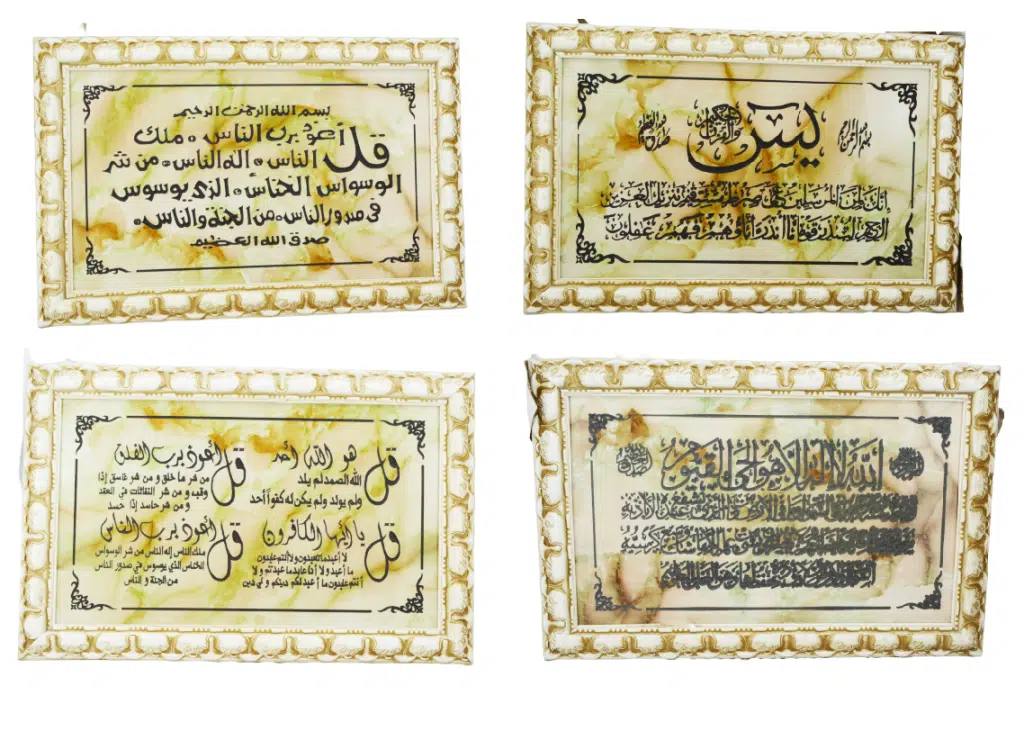 بسم الله الرحمن الرحيم
قل أعوذ برب الناس • ملك
الناس • اله الناس • من شر
الوسواس الخناس • الذي يوسوس
في صدور الناس • من الجنة والناس •
صدق الله العظيم
بسم الله الرحمن الرحيم
يس والقرآن الحكيم
صدق الله العظيم
إنك لمن المرسلين على صراط مستقيم تنزيل العزيز
الرحيم لتنذر قوما ما أنذر آباؤهم فهم غفلون
قل هو الله أحد
الله الصمد لم يلد
ولم يولد ولم يكن له كفوا أحد
قل أعوذ برب الفلق
من شر ما خلق و من شر غاسق إذا
وقب و من شر النفاثات في العقد
و من شر حاسد إذا حسد
قل يا أيها الكافرون
لا أعبد ما تعبدون ولا أنتم عبدون
ما أعبد ولا أنا عابد ما عبدتم و لا
أنتم عبدون ما أعبد لكم دينكم و لي دين
قل أعوذ برب الناس
ملك الناس إله الناس من شر الوسواس
الخناس الذي يوسوس في صدور الناس
من الجنة و الناس
الله لا إله إلا هو الحي القيوم